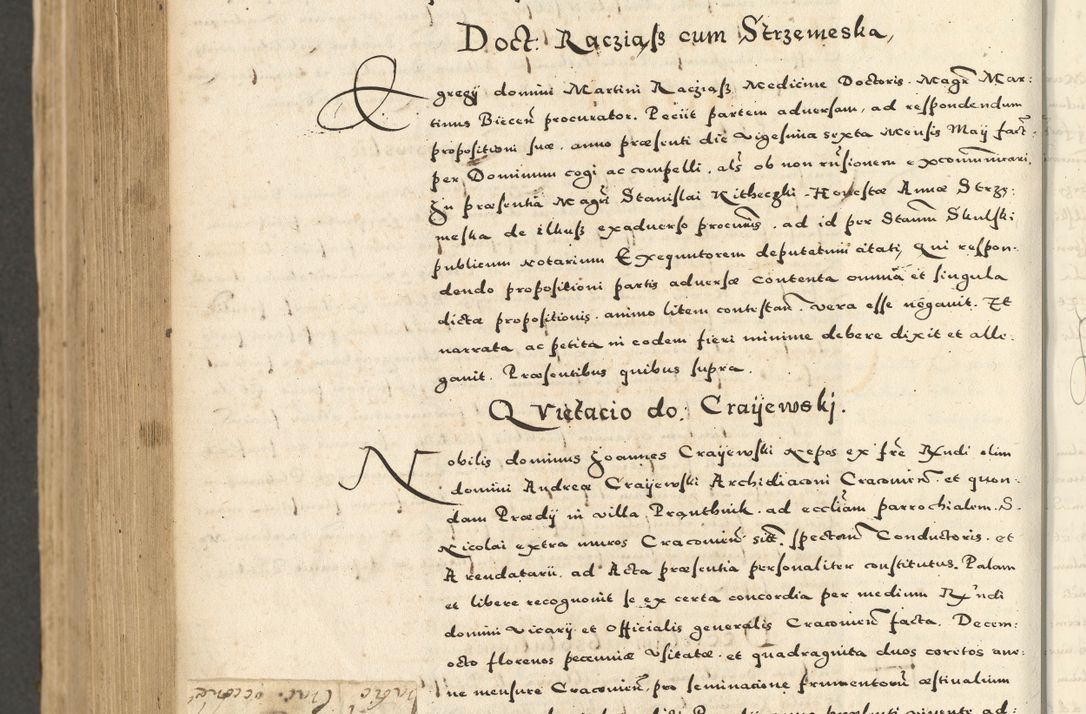 Doct: Racziąsz cum Strzemeska,
Egregij domini Martini Racziąsz Medicine Doctoris. Magr Mar:
tinus Biecen procurator. Peciit partem aduersam, ad respondendum
propositioni suæ. anno præsenti die vigesima sexta mensis Maij fact
per Dominum cogi ac compelli. als ob non rnsionem excommunicari.
In præsentia Magri Stanislai Kitheczki. Honestæ Annæ Strzy:
meska de ilkusz exaduerso procuris. ad id per Stanm Skulski
publicum Notarium Exequutorem deputatum citati, Qui respon:
dendo propositioni partis aduersæ contenta omnia et singula
dictæ propositionis. animo litem contestan. vera esse negauit. Et
narrata ac petita in eodem fieri minime debere dixit et alle:
gauit. Præsentibus quibus supra.
Quietacio do: Craijewskj.
Nobilis dominus Joannes Craijewski Nepos ex fre Rndi olim
domini Andreæ Craijewski Archidiaconi Cracouien. et quon:
dam Prædij in villa Prąnthnik. ad eccliam parrochialem. S.
Nicolai extra muros Cracouien sit. spectan Conductoris. et
Arendatarii. ad Acta præsentia personaliter constitutus. Palam
et libere recognouit se ex certa concordia per medium Rndi
domini Vicarij et Officialis generalis Cracouien facta. Decem:
octo florenos pecuniæ vsitatæ. et quadraginta duos coretos aue:
ne mensuræ Cracouien, pro seminacione frumentorum æstiualium